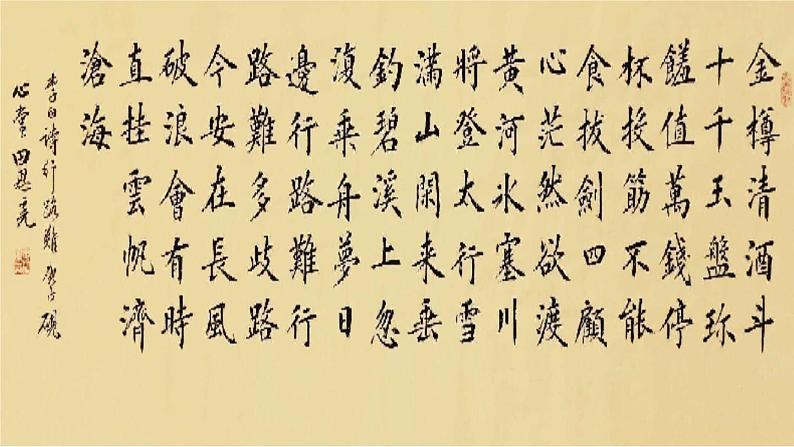 金樽清酒斗
十千玉盤珎
饈值萬錢停
杯投筯不能
食拔劍四顧
心茫然欲渡
黄河氷塞川
將登太行雪
滿山閑来垂
釣碧溪上忽
復乘舟夢日
邊行路難行
路難多歧路
今安在長風
破浪會有時
直挂雲帆濟
滄海
李白詩行路難 硯
心堂田恩亮